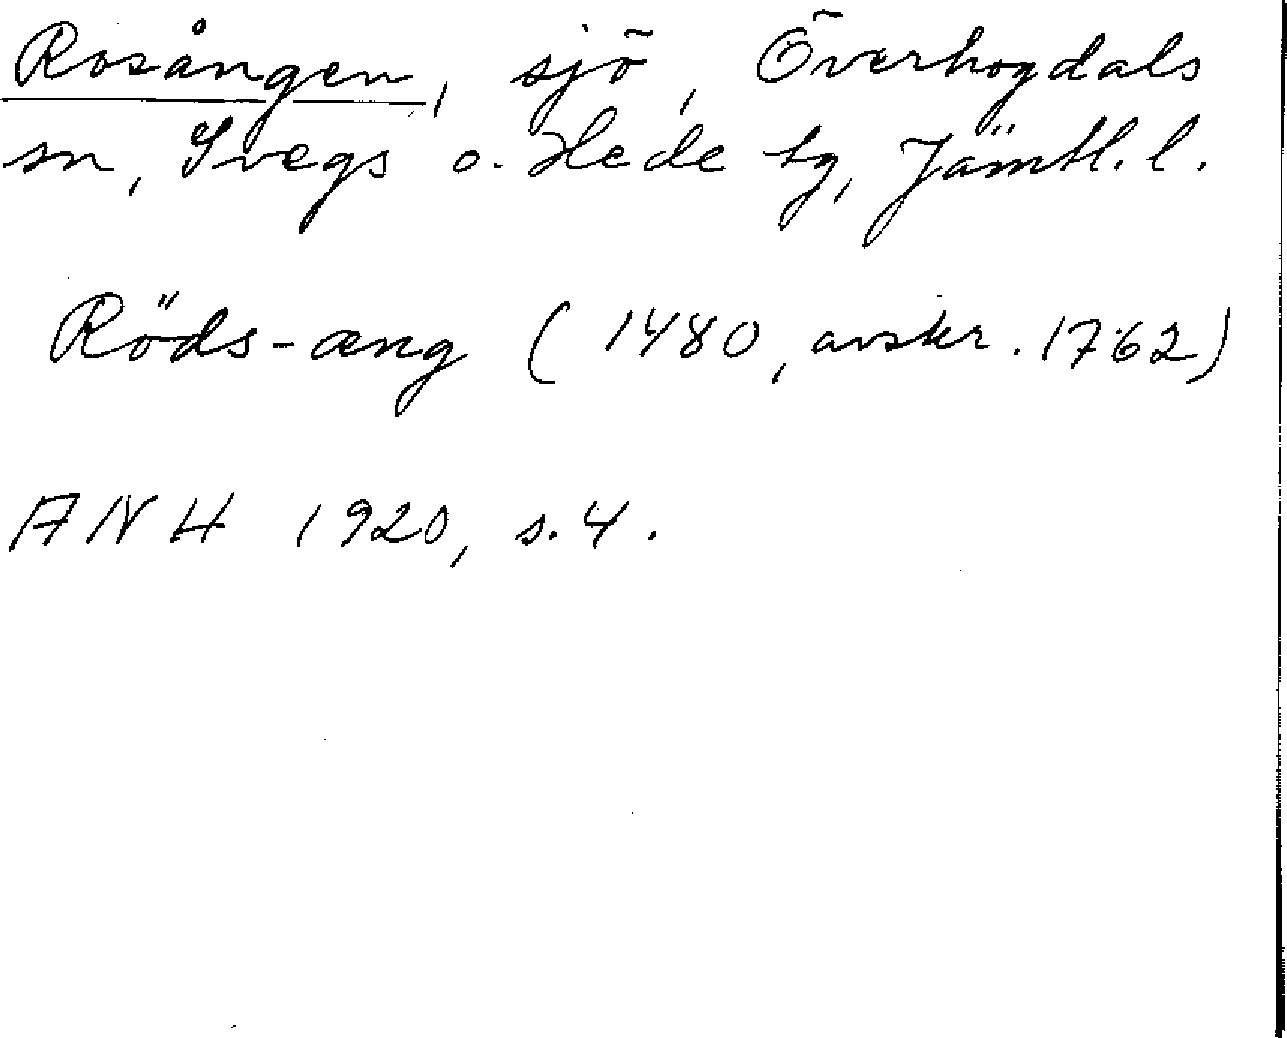 Rosången, sjö, Överhogdals
sn, Svegs o. Hede tg, Jämtl. l.
Röds-æng (1480, avskr. 1762)
ANH 1920, s. 4.